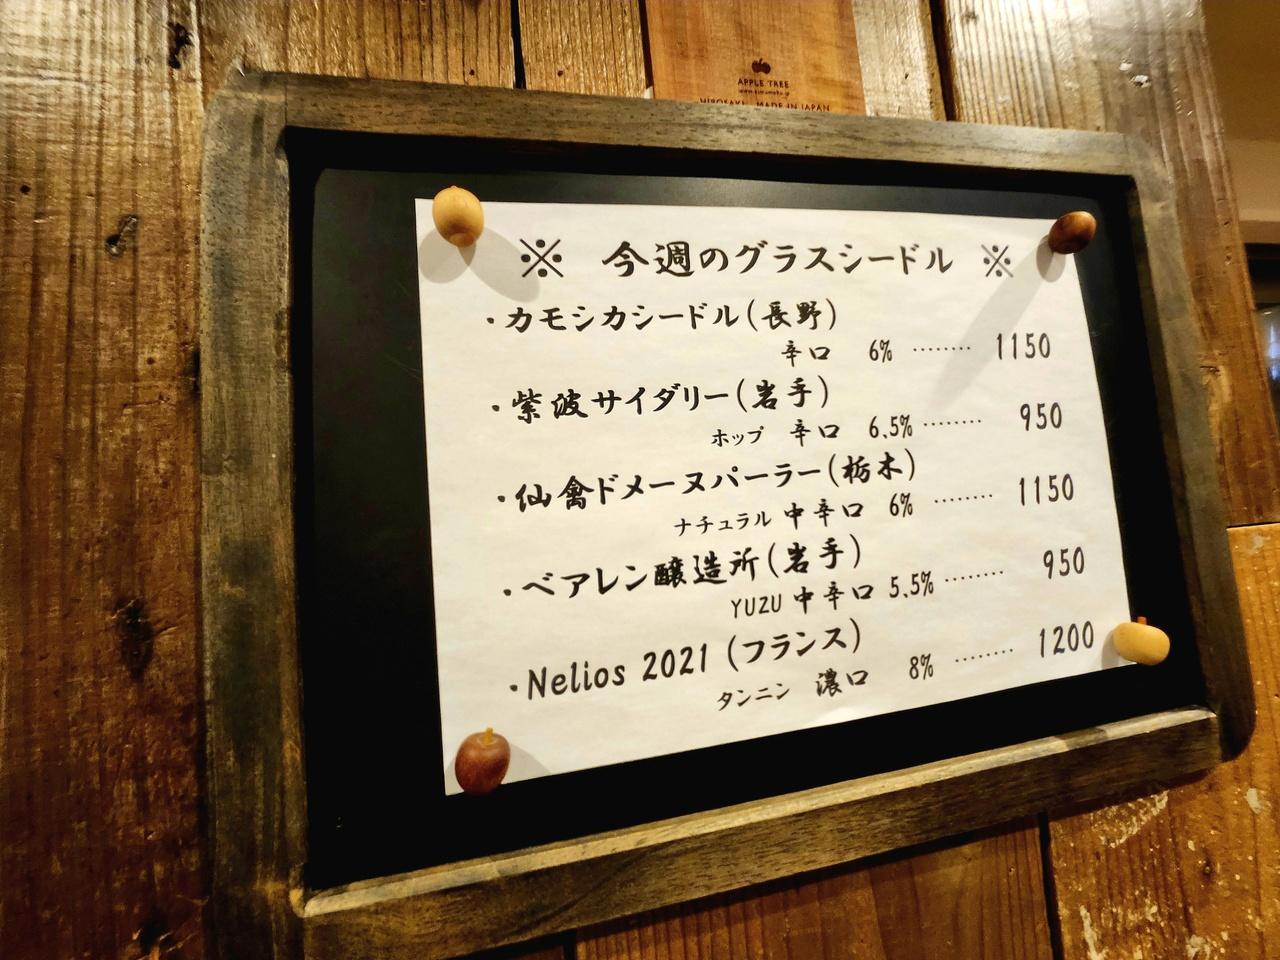 APPLE TREE
HIROSAKI MADE IN JAPAN
※ 今週のグラスシードル ※
・カモシカシードル(長野)
辛口 6% ········ 1150
・紫波サイダリー(岩手)
ホップ 辛口 6.5% ········ 950
・仙禽ドメーヌパーラー(栃木)
ナチュラル 中辛口 6% ········ 1150
・ベアレン醸造所(岩手)
YUZU 中辛口 5.5% ········ 950
・Nelios 2021 (フランス)
タンニン 濃口 8% ········ 1200